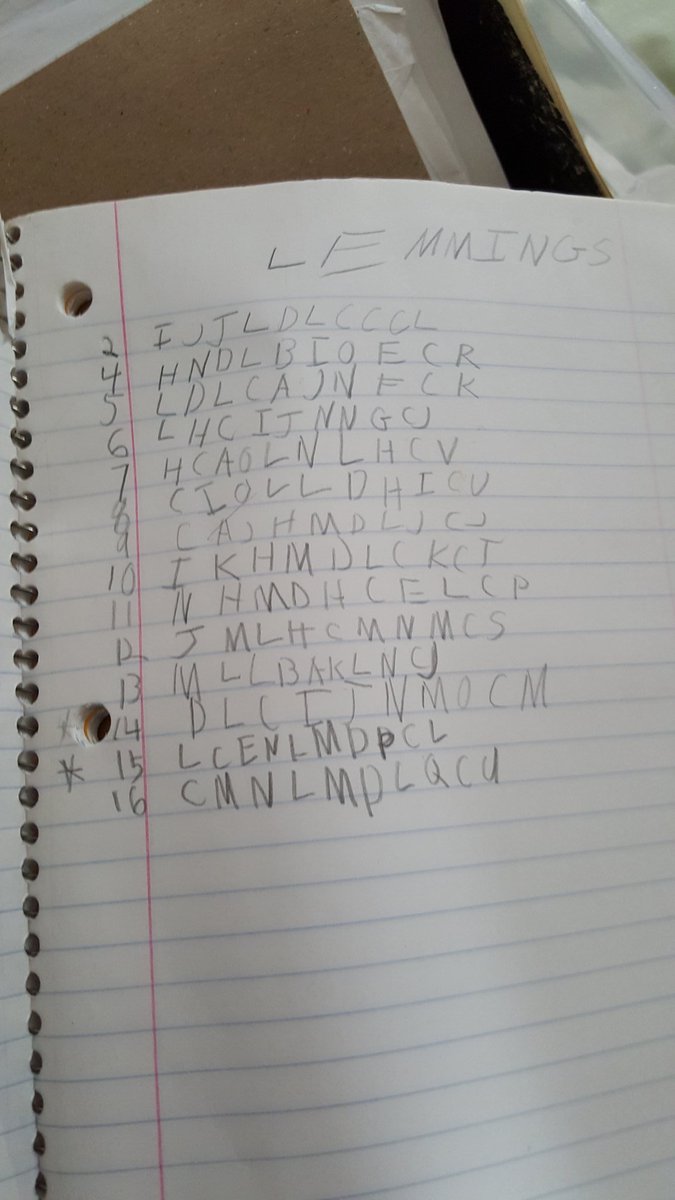 LEMMINGS
2 IJJLDLCCCL
4 HNDLBIOECR
5 LDLCAJNFCK
6 LHCIJNNGCJ
7 HCAOLNLHCV
8 CIOLLDHICU
9 CAJHMDLJCJ
10 IKHMDLCKCT
11 NHMDHCELCP
12 JMLHCMNMCS
13 MLLBAKLNCJ
14 DLCIJNMOCM
* 15 LCENLMDPCL
16 CMNLMDLQCU